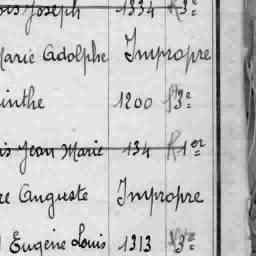 ois Joseph 1334 R 3e
Marie Adolphe Impropre
inthe 1200 R 3e
is Jean Marie 134 R 1er
re Auguste Impropre
l Eugène Louis 1313 N° 3e